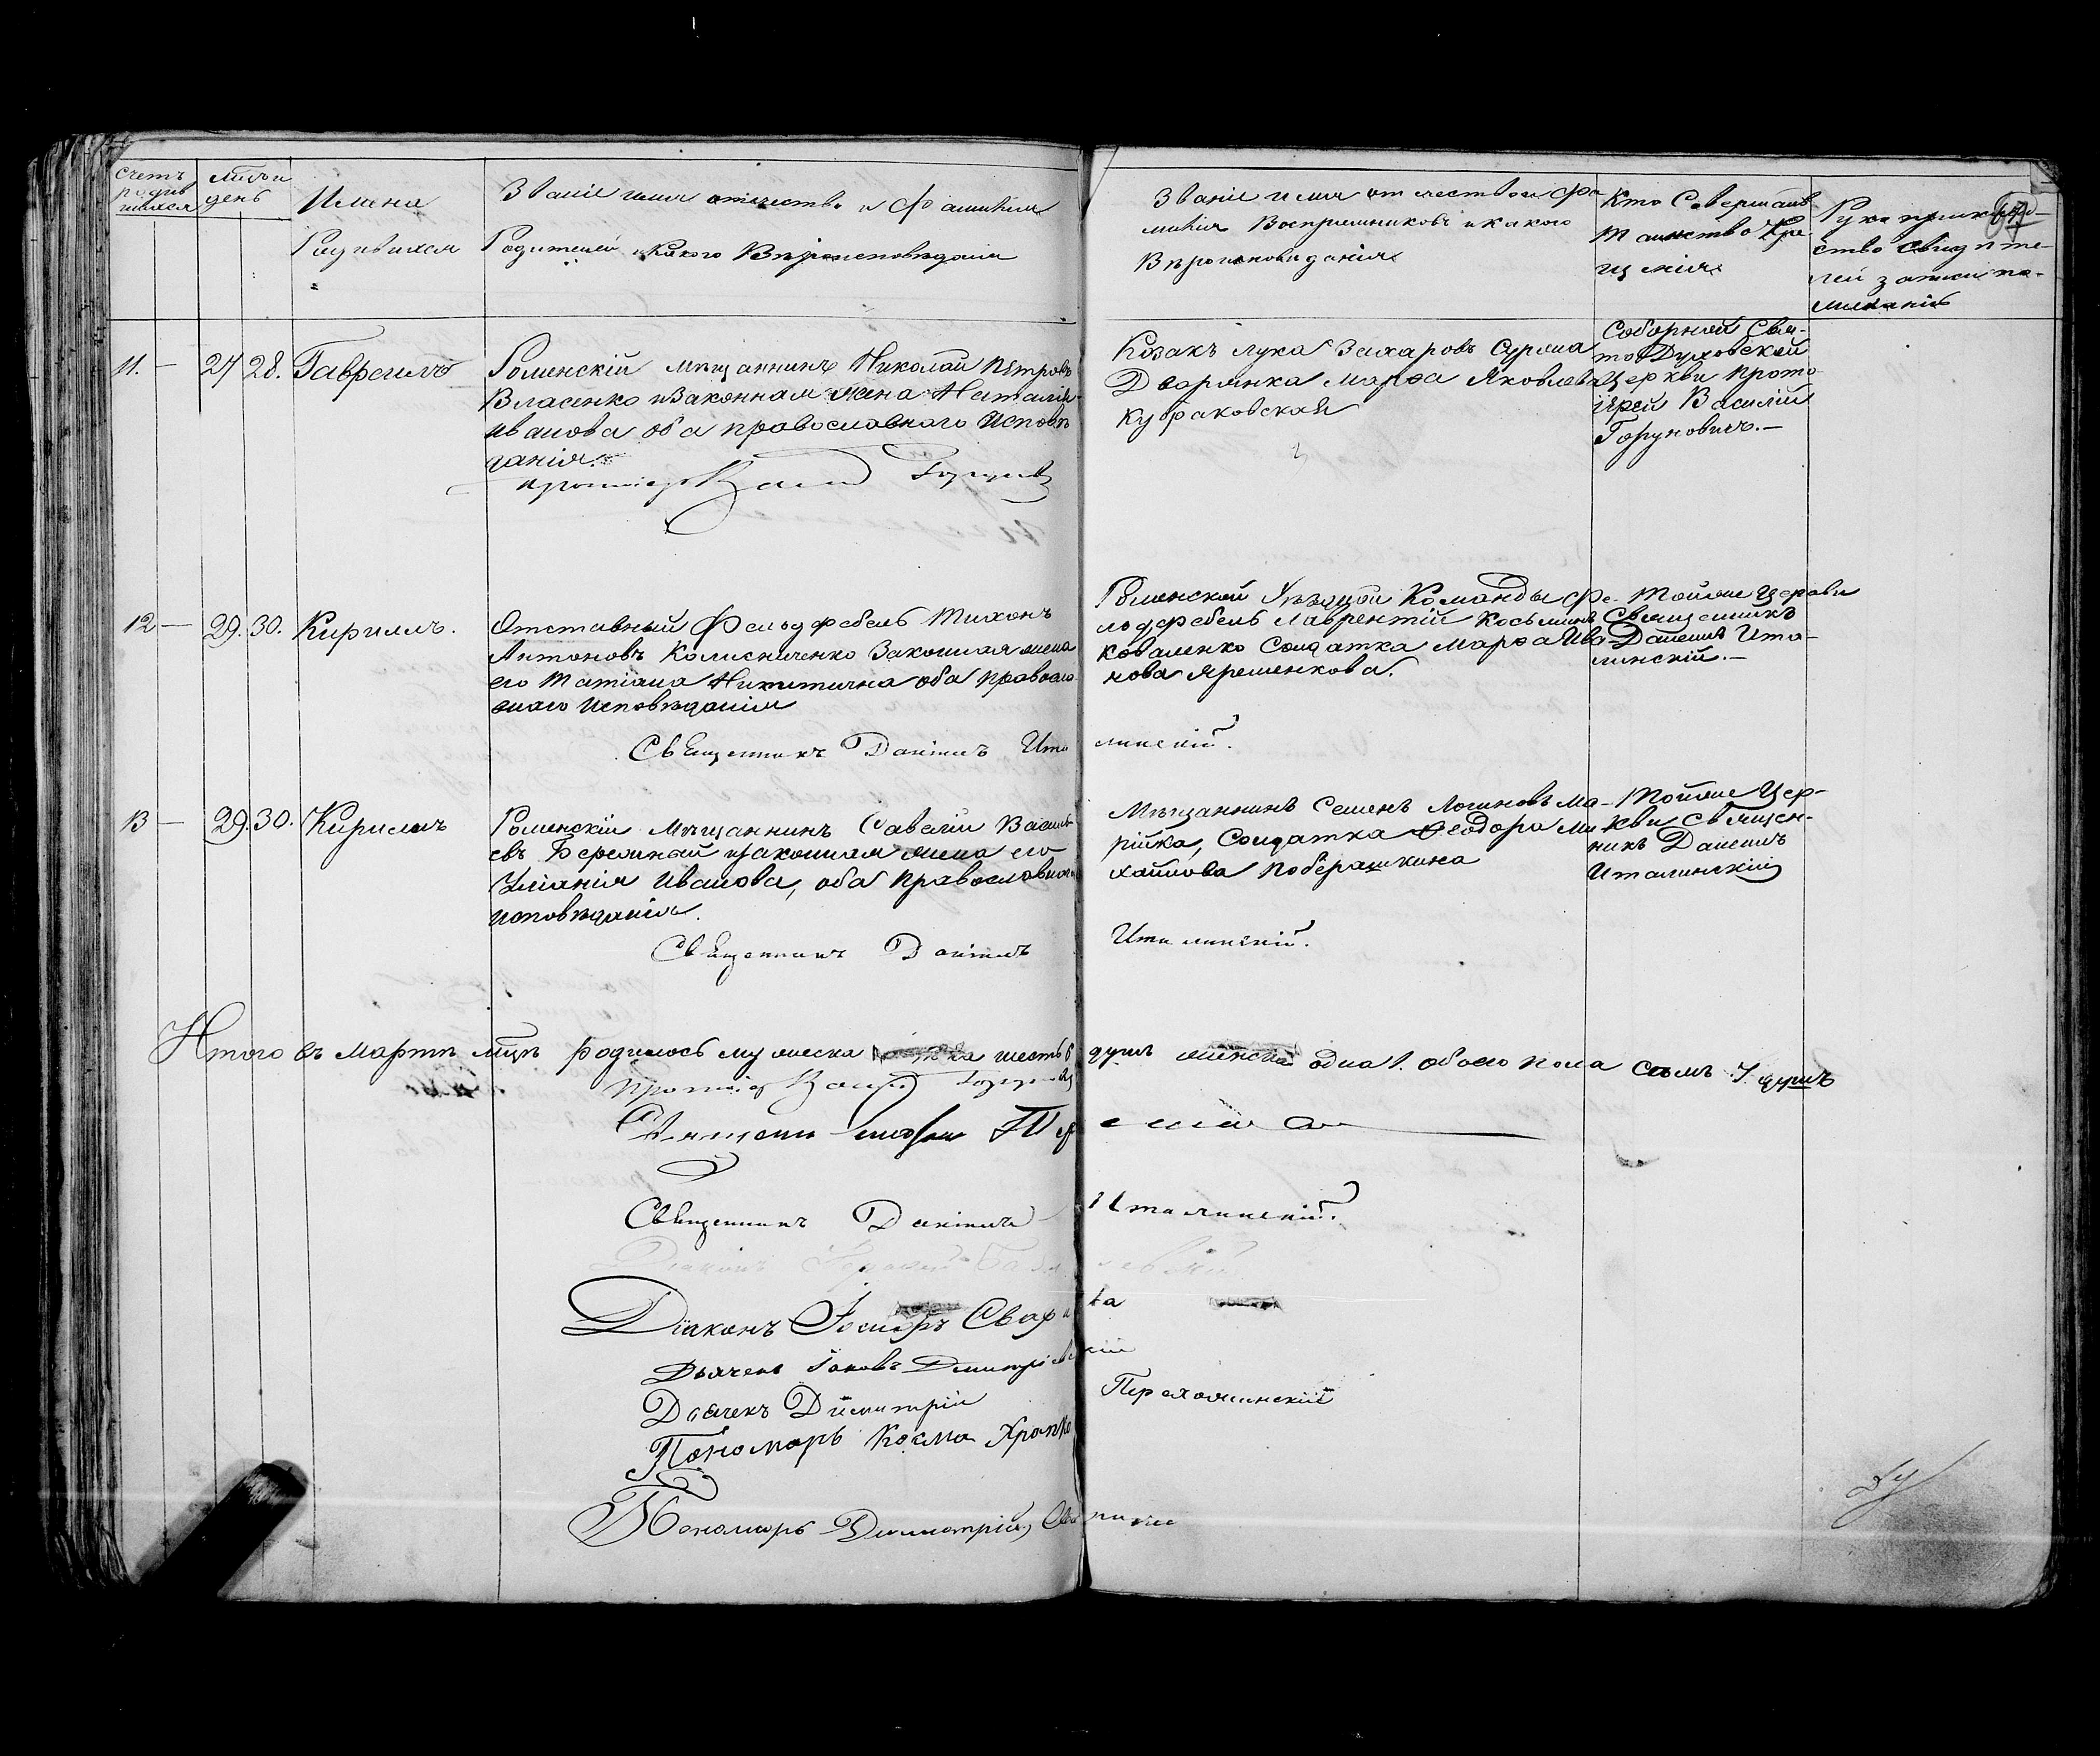 Счетъ родив шихся
Мѣсяц и день
Имена Родившихся
Званіе имя отечество и Фамилія
Родителей и Какого Вѣроисповѣданія
Званіе имя отчество и Фа
милія Воспріемниковъ и какого
Вѣроисповиданія
Кто Совершалъ
таинство Кре
щенія
Рукоприклад-
ство свидѣте-
лей записи по
желанію
11. — 27 28. Гавріилъ
Роменскій мѣщаннинъ Николай Петровъ
Власенко и Законная жена Наталія
Иванова оба православнаго Исповѣ
данія.
Козакъ Лука Захаровъ Сурма
Дворянка Марѳа Яковлева
Кубраковская
Соборной Свя-
то Духовской
Церкви прото
іерей Василій
Горунович.—
12 — 29. 30. Кириллъ.
Отставный Фельдфебель Тихонъ
Антоновъ Колисниченко Законная жена
его Татіана Никитична оба правосла
внаго Исповѣданія
Священникъ Даніилъ Ита линскій.
Роменской Уѣздной Команды Фе-
льдфебель Лаврентій Косьминъ
Коваленко Солдатка Марѳа Ива
нова Яременкова.
Тойже Церкви
Священникъ
Даниилъ Ита-
линскій.—
13 — 29. 30. Кирилъ
Роменскій Мѣщаннинъ Савелій Василь
евъ Бережный и законная жена его
Уліанія Иванова, оба Православнаго
исповѣданія.
Священникъ Даніилъ Италинскій.
Мѣщаннинъ Семенъ Логиновъ Ма-
рійка, Солдатка Ѳеодора Ми
хайлова Поберашкина
Тойже Цер-
кви Священ-
никъ Даниилъ
Италинскій
Итого въ Мартѣ мцѣ родилось мужеска шесть 6 душъ женска одна 1. обоего пола семь 7. душъ
Священникъ Даніилъ Италинскій.
Діаконъ Іосифъ
Дьячекъ Іаковъ Дмитріевскій
Дьячекъ Димитрій Перехожинскій
Пономарь Косма
Пономарь Димитрій